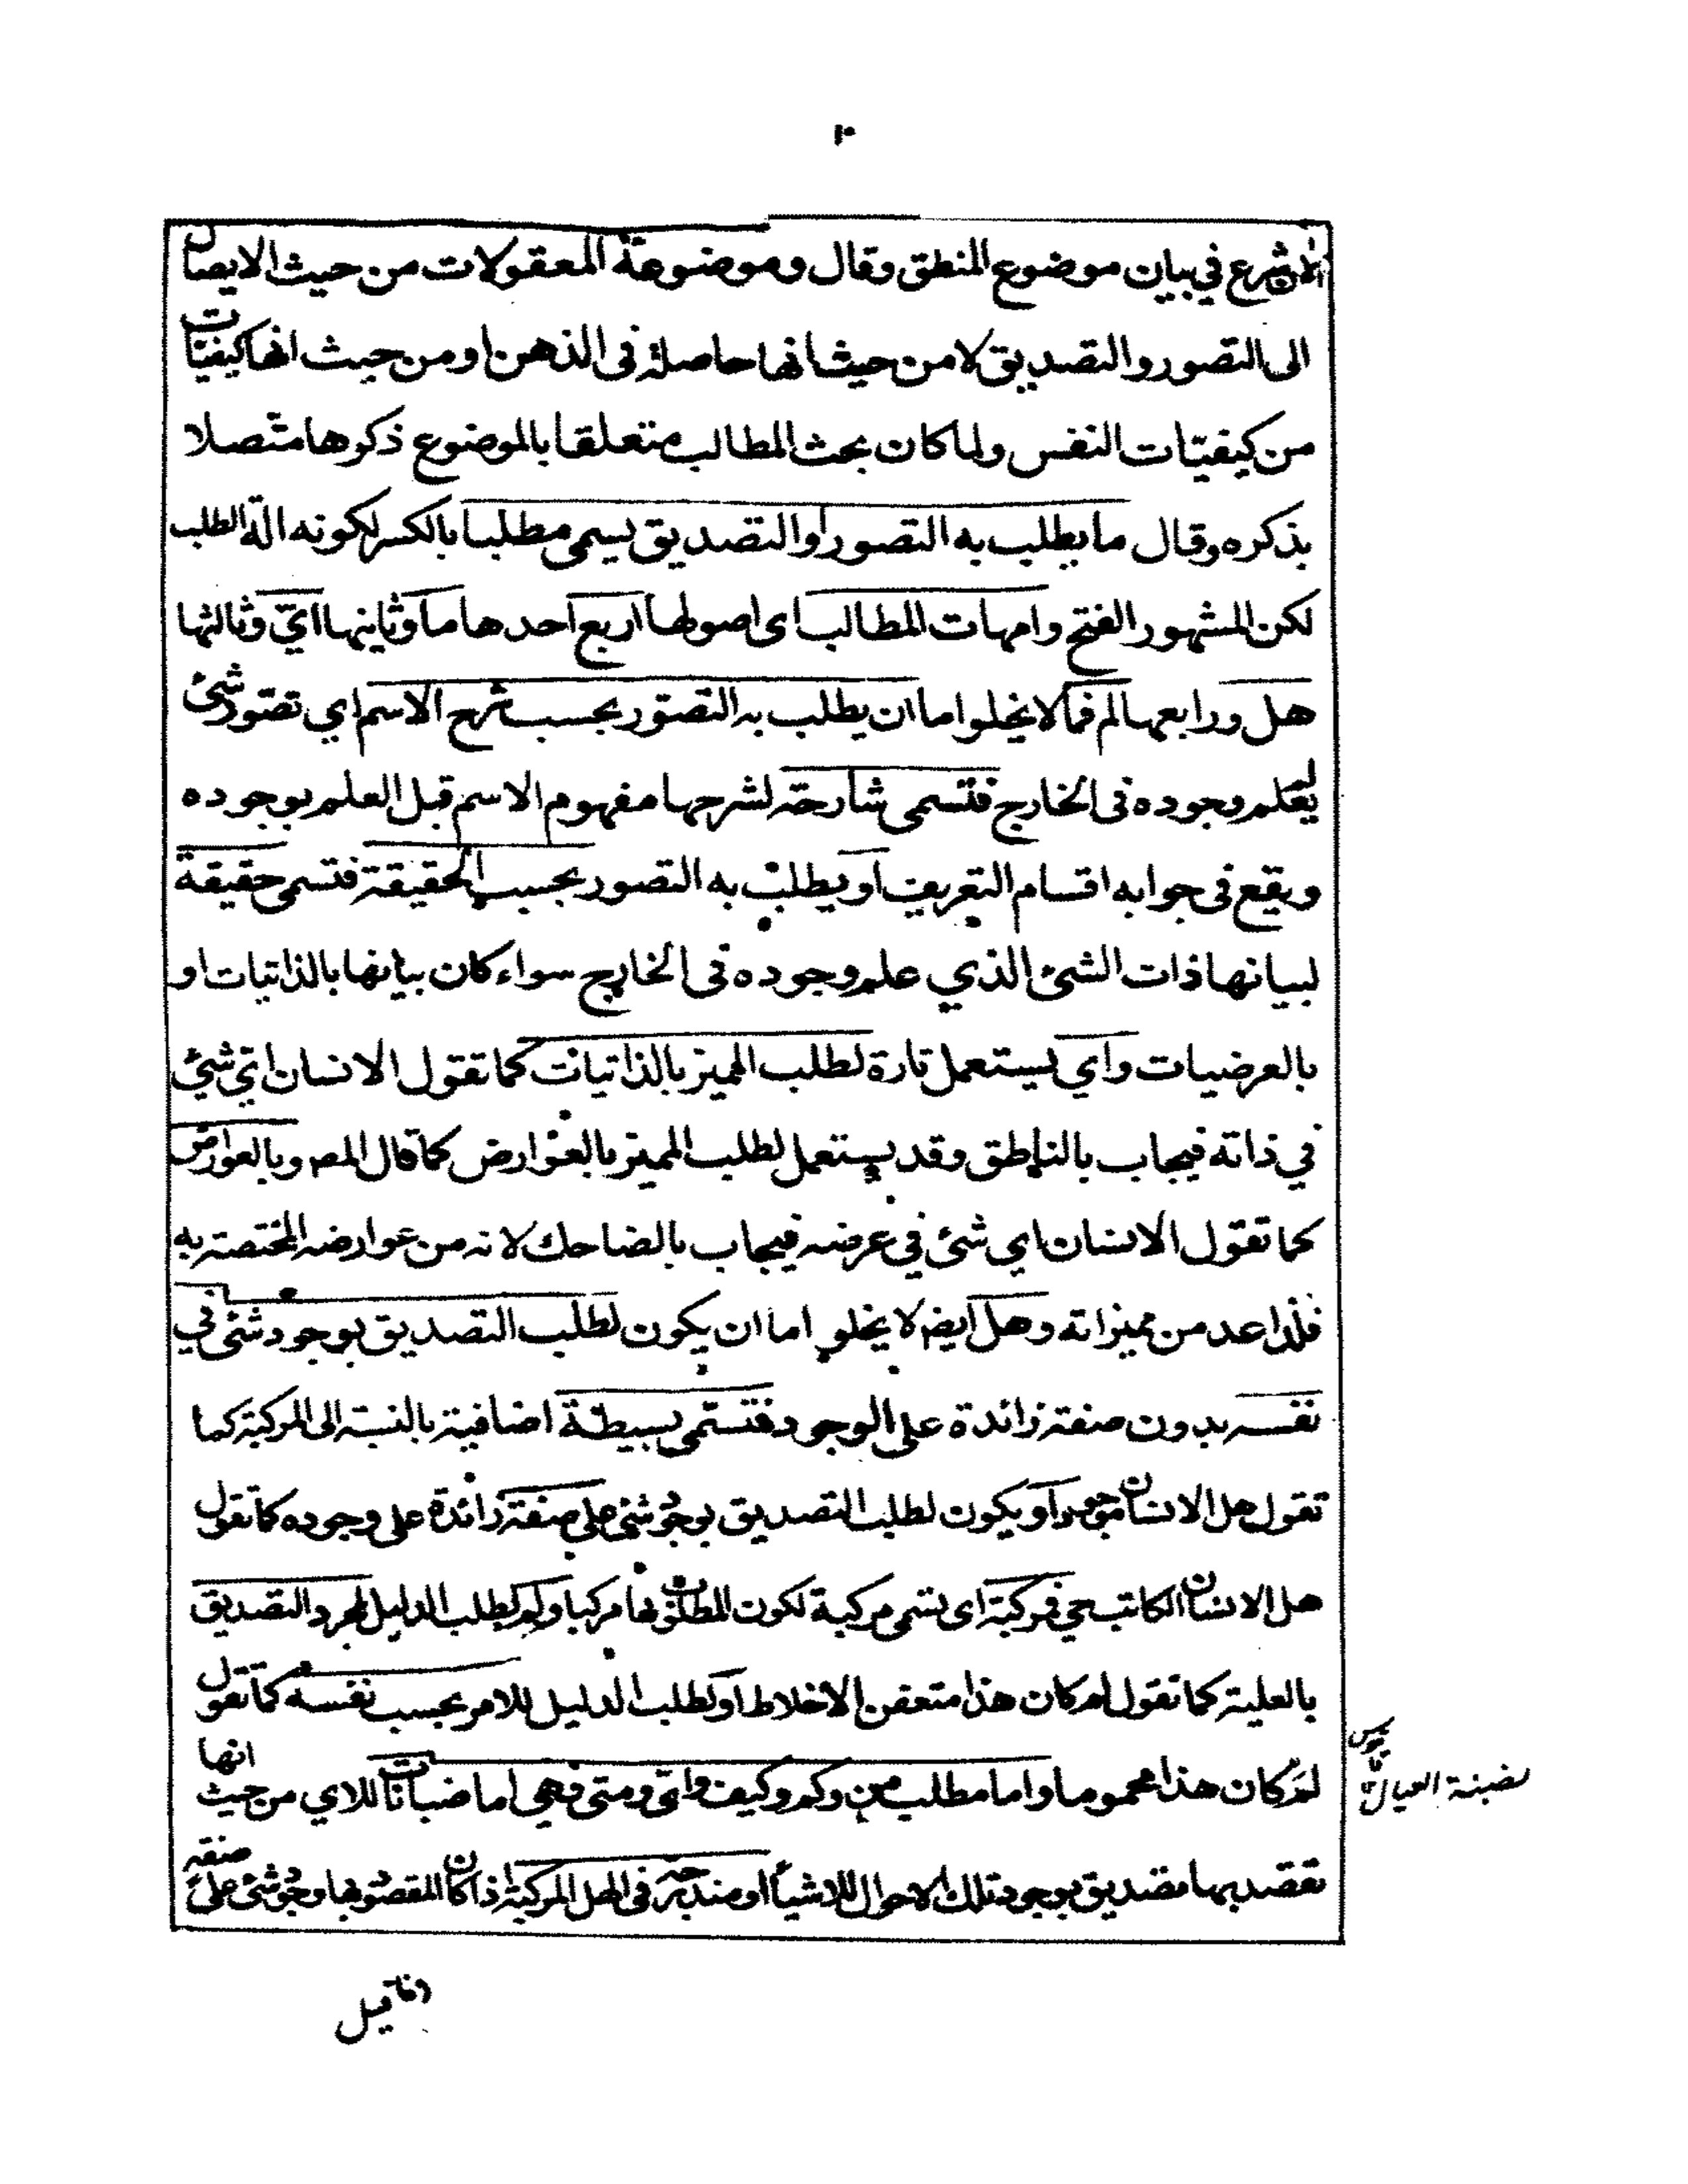 ١٠
الآن شرع في بيان موضوع المنطق وقال وموضوعه المعقولات من حيث الايصال
الى التصور والتصديق لا من حيث انها حاصلة فى الذهن او من حيث انها كيفيّات
من كيفيّات النفس ولما كان بحث المطالب متعلقا بالموضوع ذكرها متّصلا
بذكره وقال ما يطلب به التصور او التصديق يسمى مطلبا بالكسر لكونه الة الطلب
لكن المشهور الفتح وامهات المطالب اى اصولها اربع احدها ما وثانيها ايّ وثالثها
هل ورابعها لم فما لا يخلوا اما ان يطلب به التصوّر بحسب شرح الاسم اي تصوّر شئ
لم يعلم وجوده فى الخارج فتسمى شارحة لشرحها مفهوم الاسم قبل العلم بوجوده
ويقع فى جوابه اقسام التعريف او يطلب به التصور بحسب الحقيقة فتسمى حقيقة
لبيانها ذات الشئ الذي علم وجوده فى الخارج سواء كان بيانها بالذاتيات او
بالعرضيات واي يستعمل تارة لطلب المميز بالذاتيات كما تقول الانسان ايّ شئ
في ذاته فيجاب بالناطق وقد يستعمل لطلب المميز بالعوارض كما قال المصـ وبالعوارض
كما تقول الانسان اي شئ في عرضه فيجاب بالضاحك لانه من عوارضه المختصة به
فلذا عد من مميزاته وهل ايضـ لا يخلو اما ان يكون لطلب التصديق بوجود شئ في
نفسه بدون صفة زائدة على الوجود فتسمّى بسيطة اضافية بالنسبة الى المركبة كما
تقول هل الانسان موجود او يكون لطلب التصديق بوجود شئ على صفة زائدة على وجوده كما تقول
هل الانسان الكاتب حي فمركبة اى تسمى مركبة لكون المطلوب بها مركبا ولم لطلب الدليل لمجرد التصديق
بالعلية كما تقول لم كان هذا متعفن الاخلاط او لطلب الدليل للامر بحسب نفسه كما تقول
لم كان هذا محموما واما مطلب من وكم وكيف واين ومتى فهي اما للاي من حيث انها
تقصد بها تصديق بوجود تلك الاحوال للاشياء او مندرجة فى الهل المركبة اذا كان المقصود بها وجود شئ على صفة